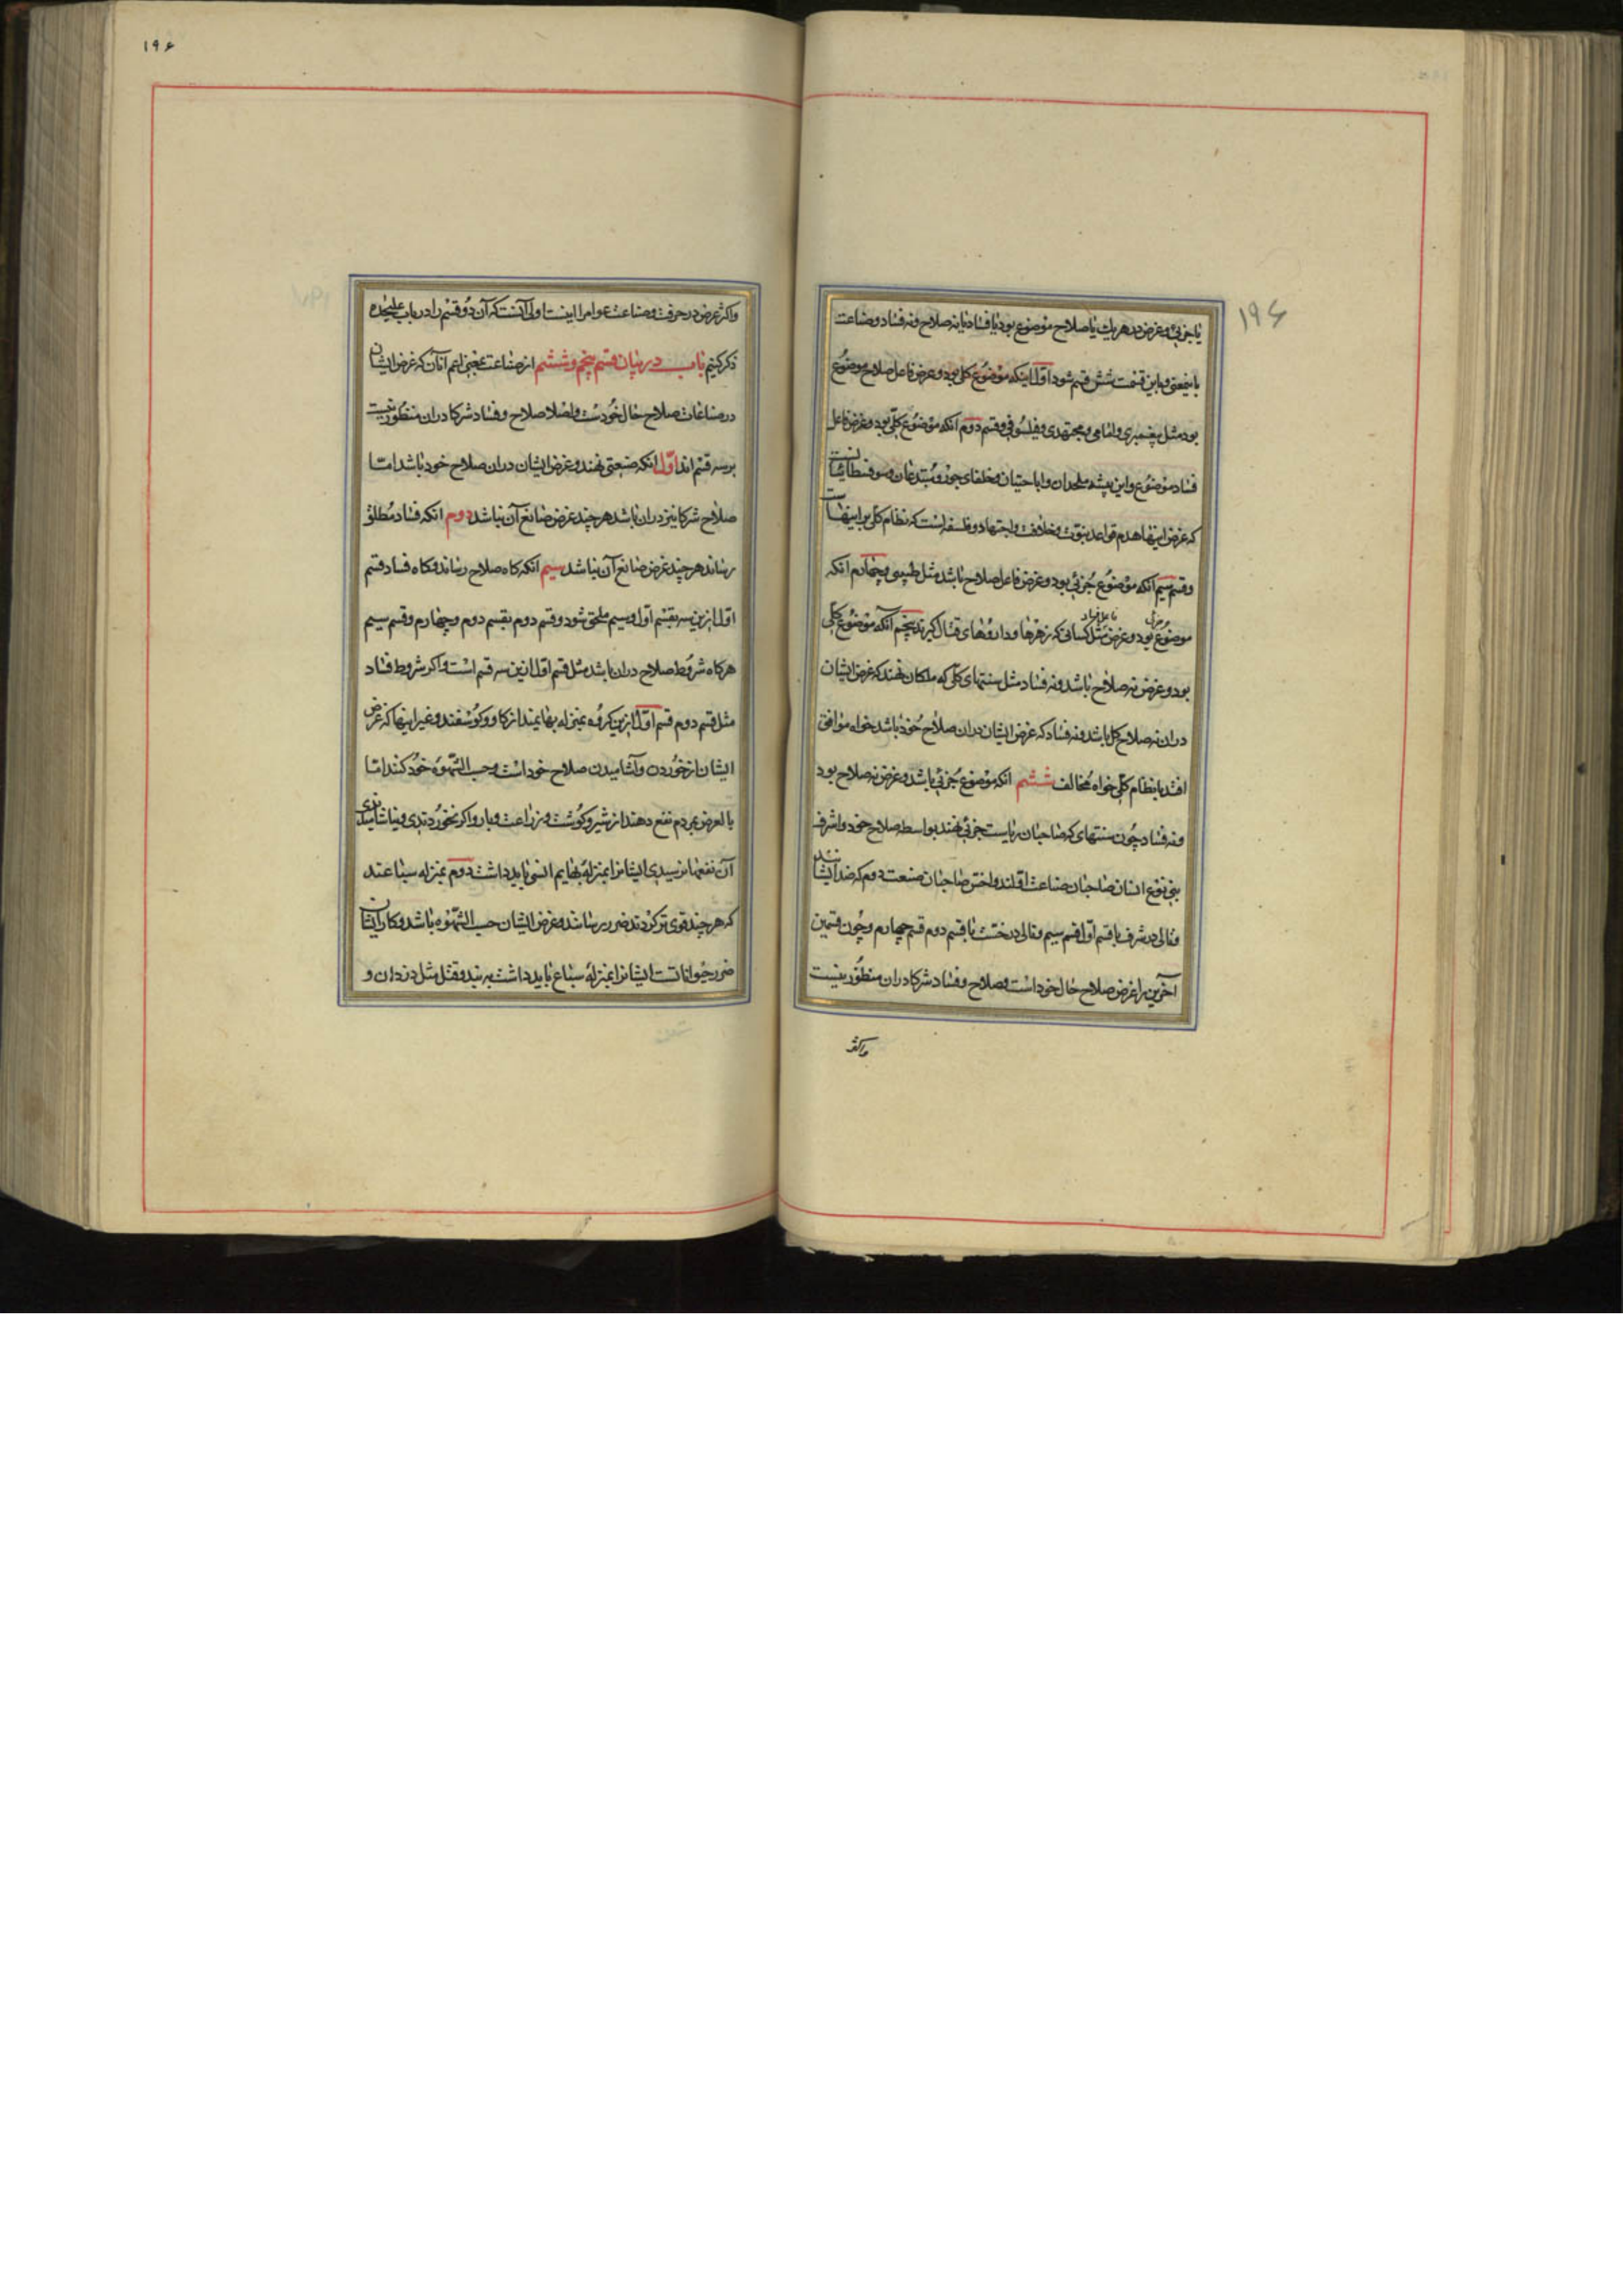 ۱۹۶
یا جزئی و غرض در هریك یا صلاح موضوع بود یا فساد یا نه صلاح و نه فساد و صناعت
باینمعنی و باین قسمت شش قسم شود اول اینکه موضوع کلی بود و غرض فاعل صلاح موضوع
بود مثل پیغمبری و امامی و مجتهدی و فیلسوفی و قسم دوم انکه موضوع کلی بود و غرض فاعل
فساد موضوع و این پیشه ملحدان و اباحتیان و خلفای جور و مبتدعان و سوفسطائیانست
که غرض اینها هدم قواعد نبوت و خلافت و اجتهاد و فلسفه است که نظام کل بر اینهاست
و قسم سیم آنکه موضوع جزئی بود و غرض فاعل صلاح باشد مثل طبیبی و چهارم انکه
موضوع جزئی بود و غرض فاعل فساد مثل کسانی که زهرها و داروهای قتال گیرند پنجم آنکه موضوع کلی
بود و غرض نه صلاح باشد و نه فساد مثل سنتهای کلی که ملکان نهند که غرض ایشان
دران نه صلاح کل باشد و نه فساد که غرض ایشان دران صلاح خود باشد خواه موافق
افتد با نظام کلی خواه مخالف ششم انکه موضوع جزئی باشد و غرض نه صلاح بود
و نه فساد چون سنتهای که صاحبان ریاست جزئی نهند بواسطه صلاح خود و اشرف
بنی نوع انسان صاحبان صناعت اولند و اخس صاحبان صنعت دوم که ضد ایشانند
و تالی در شرف با قسم اول قسم سیم و تالی در خست با قسم دوم قسم چهارم و چون قسمین
آخرین را غرض صلاح حال خود است و صلاح و فساد شرکا دران منظور نیست
واکثر
۱۹۶
واکثر غرض در حرفت و صناعت عوام را اینست اولی آنست که آن دو قسم را در باب علیحده
ذکر کنیم باب در بیان قسم پنجم و ششم از صناعت بمعنی اعم آنان که غرض ایشان
در صناعات صلاح حال خودست و اصلا صلاح و فساد شرکا دران منظور نیست
بر سه قسم اند اول انکه صنعتی نهند و غرض ایشان دران صلاح خود باشد اما
صلاح شرکا نیز دران باشد هر چند غرض صانع آن نباشد دوم انکه فساد مطلق
رساند هر چند غرض صانع آن نباشد سیم انکه کاه صلاح رساند و کاه فساد قسم
اول ازین سه بقسم اول و سیم ملحق شود و قسم دوم بقسم دوم و چهارم و قسم سیم
هرکاه شروط صلاح دران باشد مثل قسم اول ازین سه قسم است و اکر شروط فساد
مثل قسم دوم قسم اول ازین کروه بمنزله بهایمند از کاو و کوسفند و غیر اینها که غرض
ایشان از خوردن و آشامیدن صلاح خود است و حب الشهوه خود کنند اما
بالعرض بمردم نفع دهند از شیر و کوشت و زراعت و بار و اکر نخوردندی و نیاشامیدندی
آن نفعها نرسیدی ایشانرا بمنزله بهایم انسی باید داشت دوم بمنزله سباعند
که هر چند قوی تر کردند ضرر رسانند و غرض ایشان حب الشهوه باشد و کار ایشان
ضرر حیواناتست ایشانرا بمنزله سباع باید داشت به بند و قتل مثل دزدان و